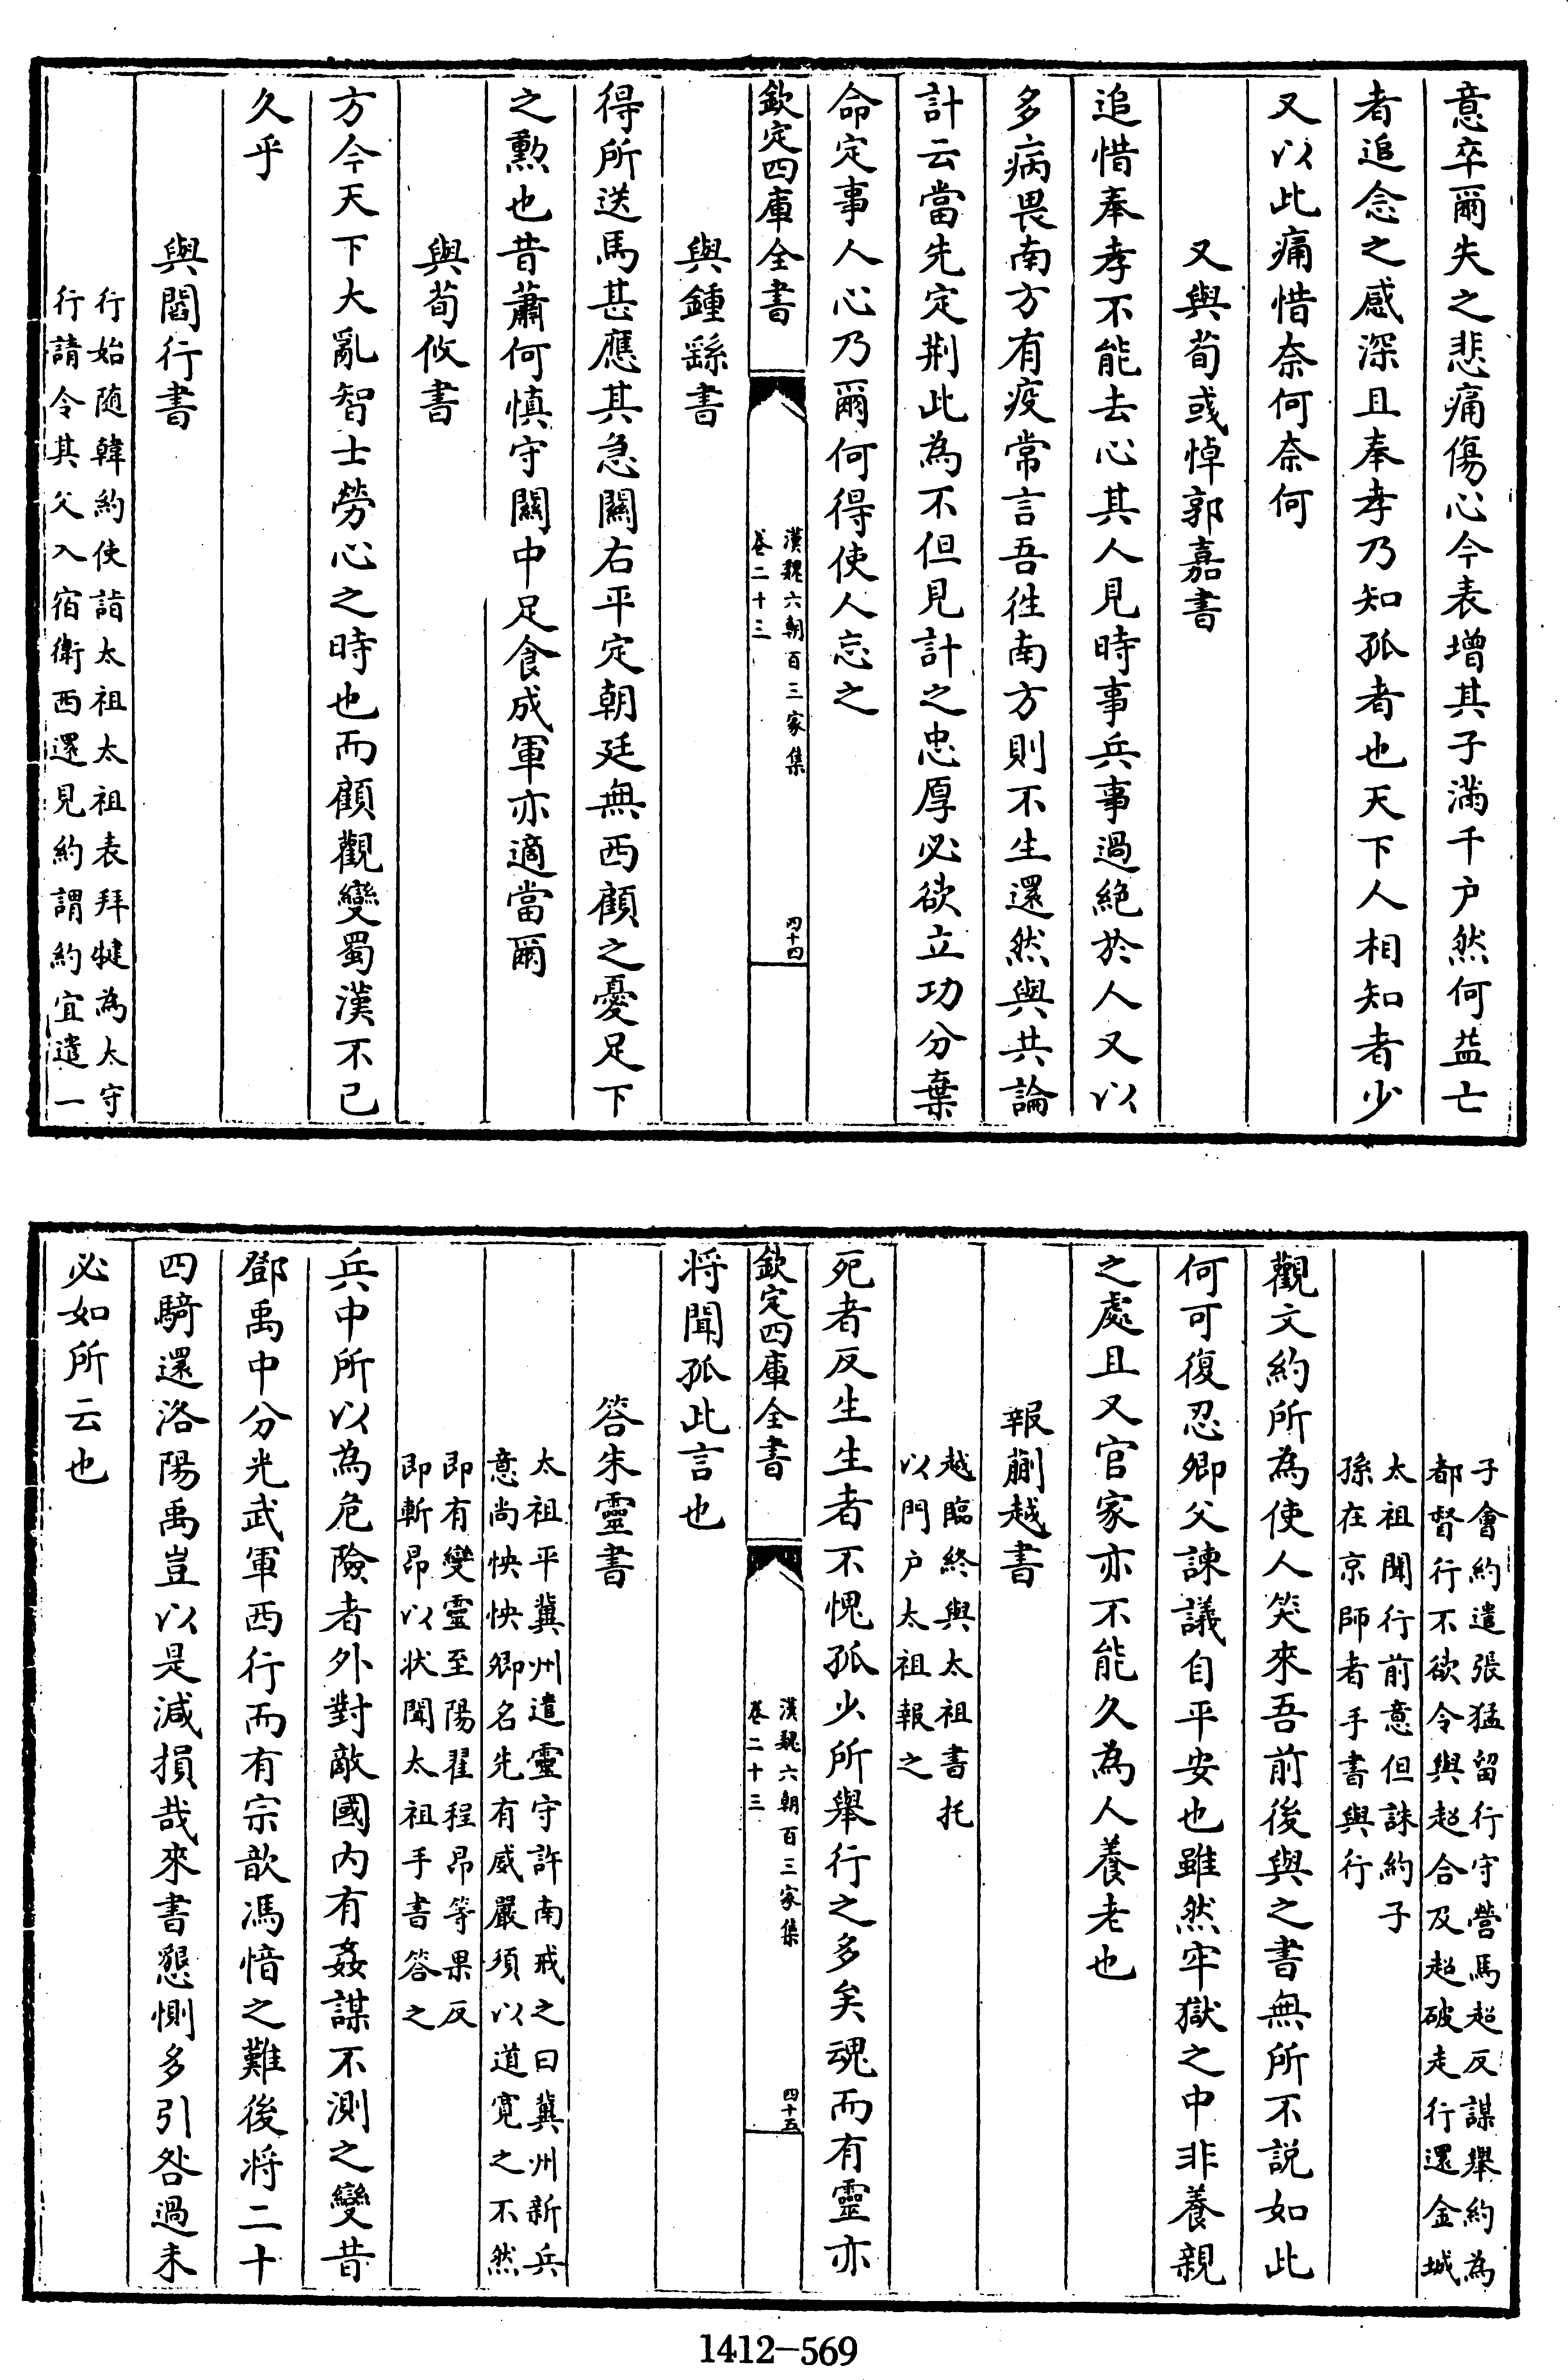 意卒爾失之悲痛傷心今表增其子滿千户然何益亡
者追念之感深且奉孝乃知孤者也天下人相知者少
又以此痛惜奈何奈何
又與荀彧悼郭嘉書
追惜奉孝不能去心其人見時事兵事過絶於人又以
多病畏南方有疫常言吾徃南方則不生還然與共論
計云當先定荆此為不但見計之忠厚必欲立功分棄
命定事人心乃爾何得使人忘之
欽定四庫全書
漢魏六朝百三家集
卷二十三
四十四
與鍾繇書
得所送馬甚應其急關右平定朝廷無西顧之憂足下
之勲也昔蕭何慎守關中足食成軍亦適當爾
與荀攸書
方今天下大亂智士勞心之時也而顧觀變蜀漢不已
久乎
與閻行書
行始随韓約使詣太祖太祖表拜犍為太守
行請令其父入宿衛西還見約謂約宜遣一
子會約遣張猛留行守營馬超反謀舉約為
都督行不欲令與超合及超破走行還金城
太祖聞行前意但誅約子
孫在京師者手書與行
觀文約所為使人笑來吾前後與之書無所不説如此
何可復忍卿父諫議自平安也雖然牢獄之中非養親
之處且又官家亦不能久為人養老也
報蒯越書
越臨終與太祖書托
以門户太祖報之
死者反生生者不愧孤少所舉行之多矣魂而有靈亦
欽定四庫全書
漢魏六朝百三家集
卷二十三
四十五
将聞孤此言也
答朱靈書
太祖平冀州遣靈守許南戒之曰冀州新兵
意尚怏怏卿名先有威嚴須以道寛之不然
即有變靈至陽翟程昂等果反
即斬昂以状聞太祖手書答之
兵中所以為危險者外對敵國内有姦謀不測之變昔
鄧禹中分光武軍西行而有宗歆馮愔之難後将二十
四騎還洛陽禹豈以是減損哉來書懇惻多引咎過未
必如所云也
1412-569